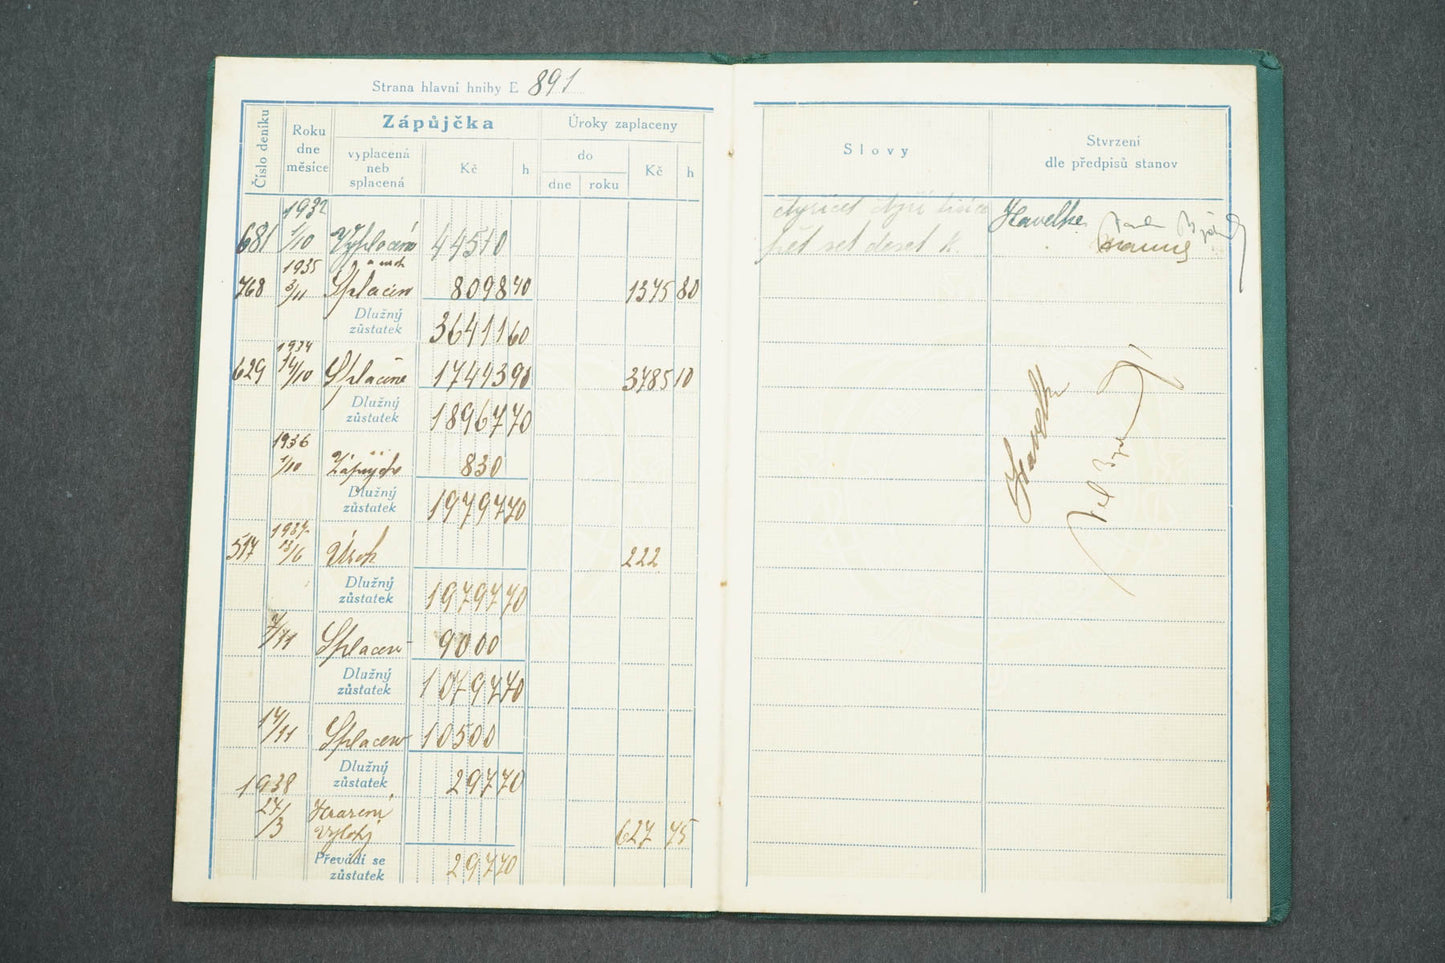 Strana hlavní hnihy E 891
Číslo deníku
Roku dne měsíce
Zápůjčka
vyplacená neb splacená
Kč
h
Úroky zaplaceny
do
dne
roku
Kč
h
Slovy
Stvrzení
dle předpisů stanov
1932
681 1/10 Vyplaceno 44510 čtyřicet čtyři tisíce Havelka
pět set deset K.
1935
768 3/11 Splaceno 8098 40 1375 80
Dlužný
zůstatek 36411 60
1934
629 14/10 Splaceno 17443 90 3785 10
Dlužný
zůstatek 18967 70
1936
1/10 830
Dlužný
zůstatek 19797 70
Havelka
1937
517 13/6 Úrok 222
Dlužný
zůstatek 19797 70
7/11 Splaceno 9000
Dlužný
zůstatek 10797 70
14/11 Splaceno 10500
Dlužný
zůstatek 297 70
1938
27/3 Hrazení
výlohy 627 75
Převádí se
zůstatek 297 70